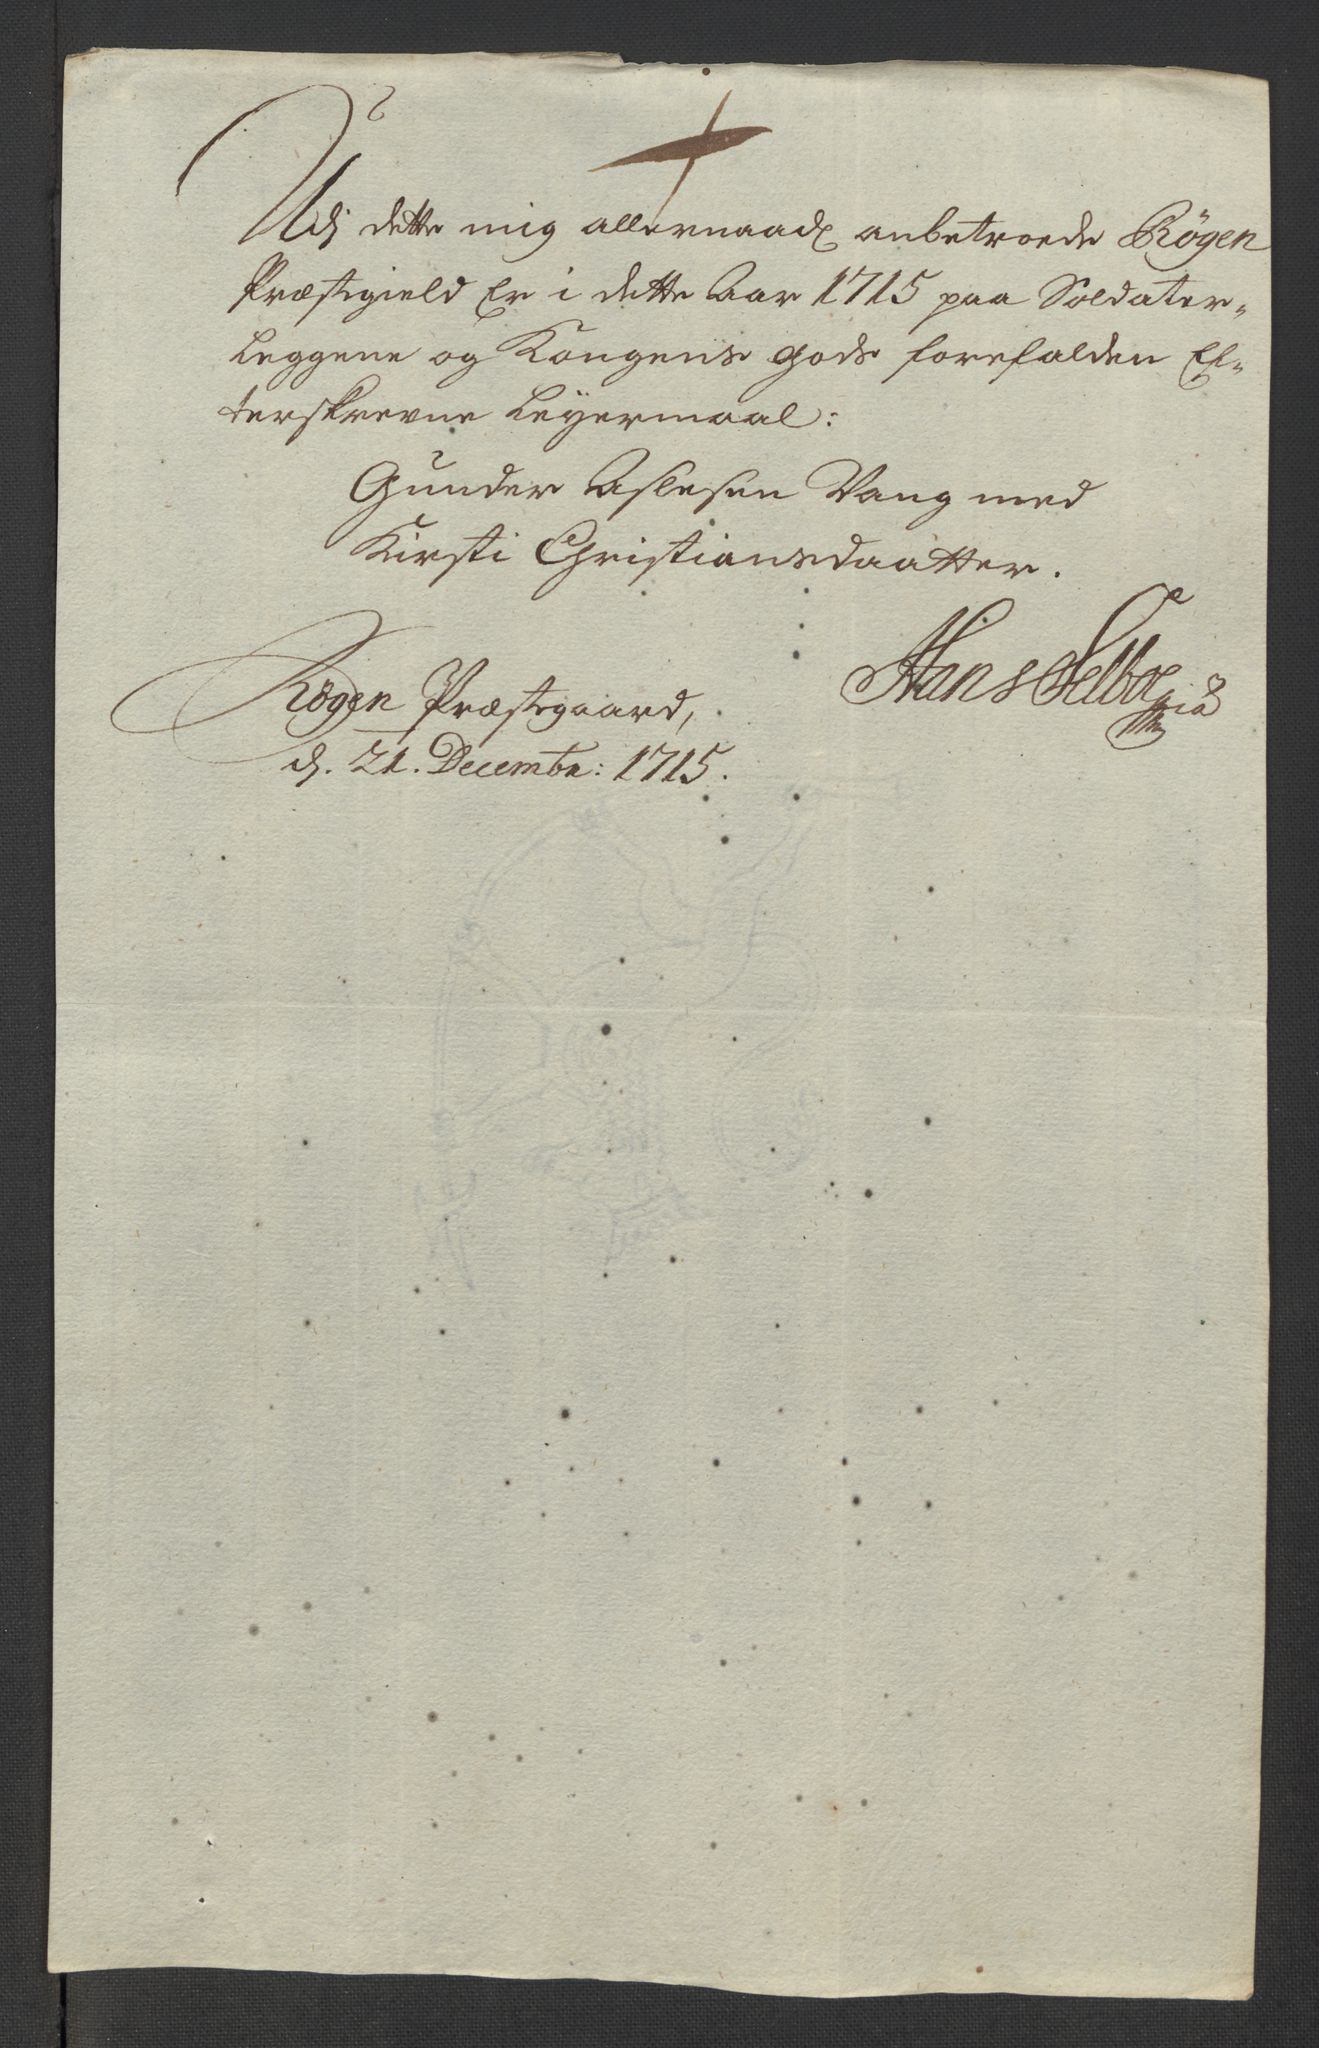 Udj dette mig allernaadͤ anbetroede Røgen
Præstegield Er i dette Aar 1715 paa Soldater-
Leggene og Kongens gods forefalden Ef-
terskrevne Leyermaal:
Gunder Aslesen Vang med
Kirsti Christiansdaatter.
Røgen Præstegaard,
d. 21. Decembr: 1715.
Hans Selboe